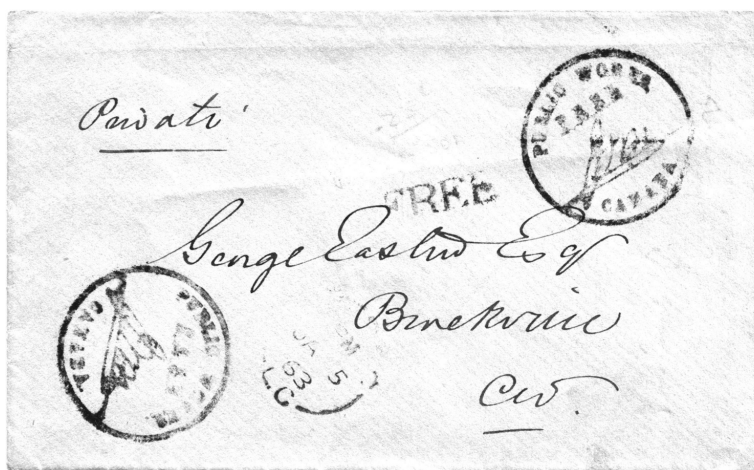 Private
PUBLIC WORKS
FREE
CANADA
FREE
George Easton Esq
Brockville
CW.
PUBLIC WORKS
FREE
CANADA
JA 5
63
L.C